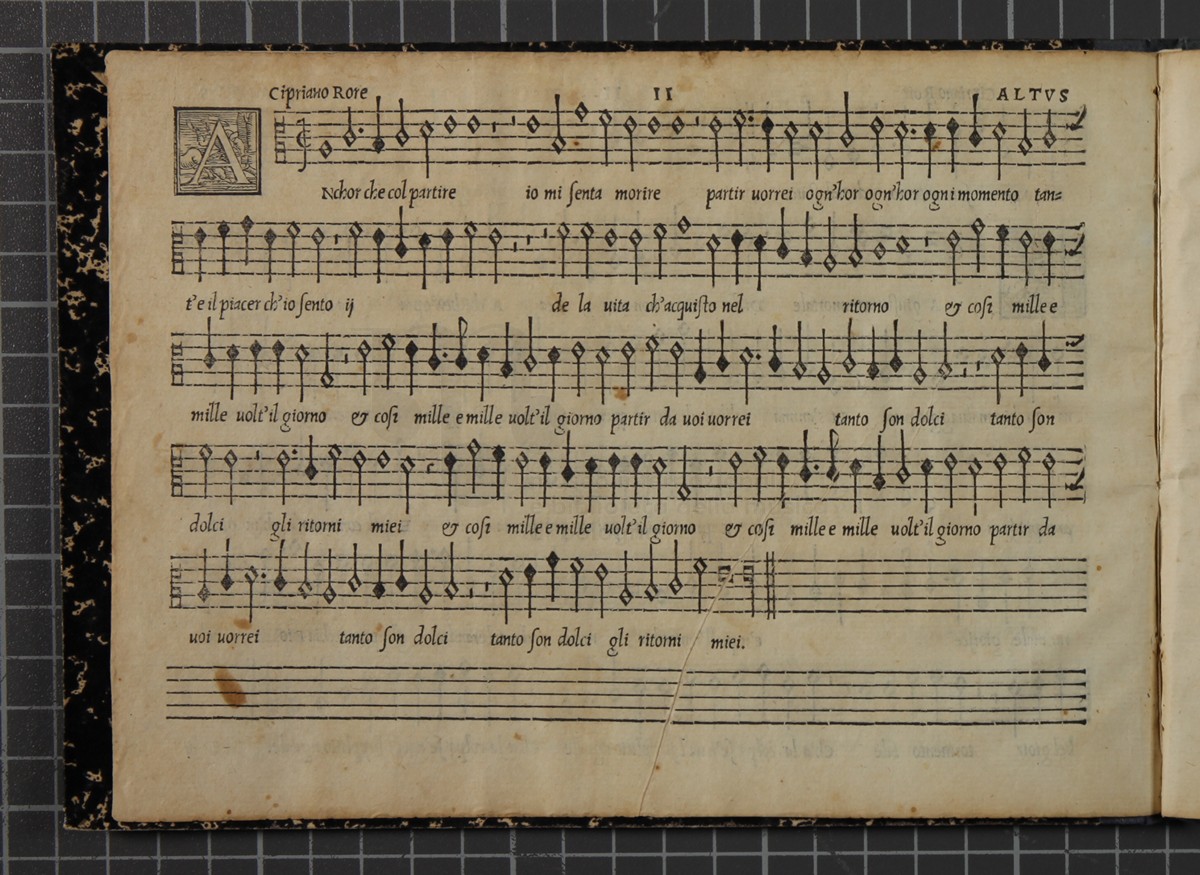 Cipriano Rore II ALTVS
ANchor che col partire io mi senta morire partir uorrei ogn'hor ogn'hor ogni momento tan=
t'e il piacer ch'io sento ij de la uita ch'acquisto nel ritorno & cosi mille e
mille uolt'il giorno & cosi mille e mille uolt'il giorno partir da uoi uorrei tanto son dolci tanto son
dolci gli ritorni miei & cosi mille e mille uolt'il giorno & cosi mille e mille uolt'il giorno partir da
uoi uorrei tanto son dolci tanto son dolci gli ritorni miei.